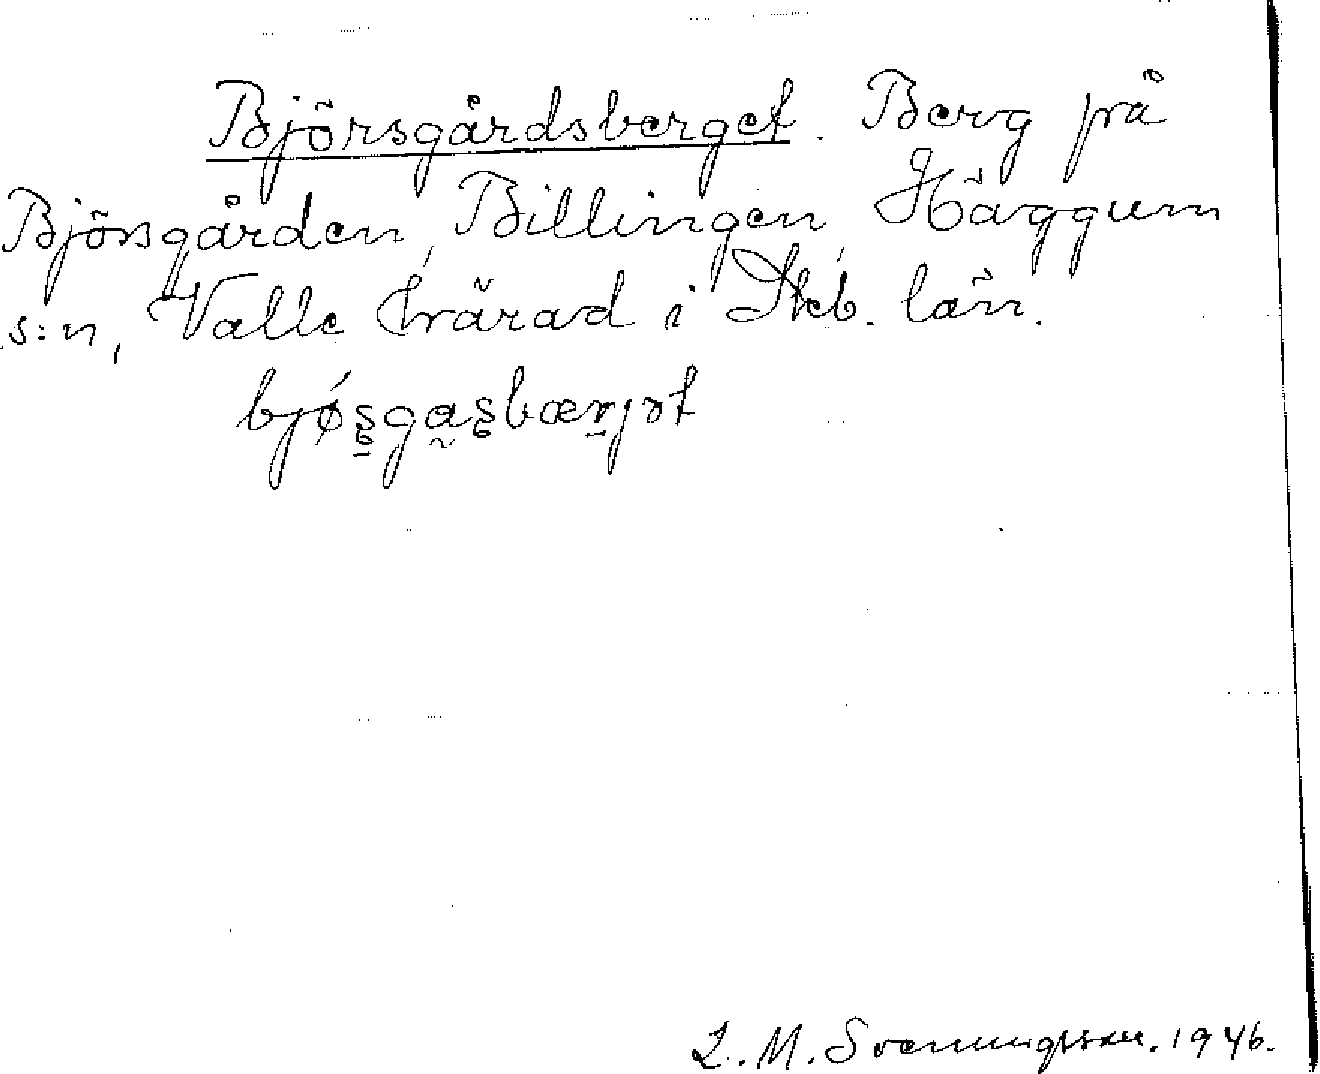 Björsgårdsberget. Berg på
Björsgården, Billingen, Häggum
s:n, Valle härad i Skb. län.
bjø̀s̱ga̰sbær̠jət
L. M. Svenungsson. 1946.